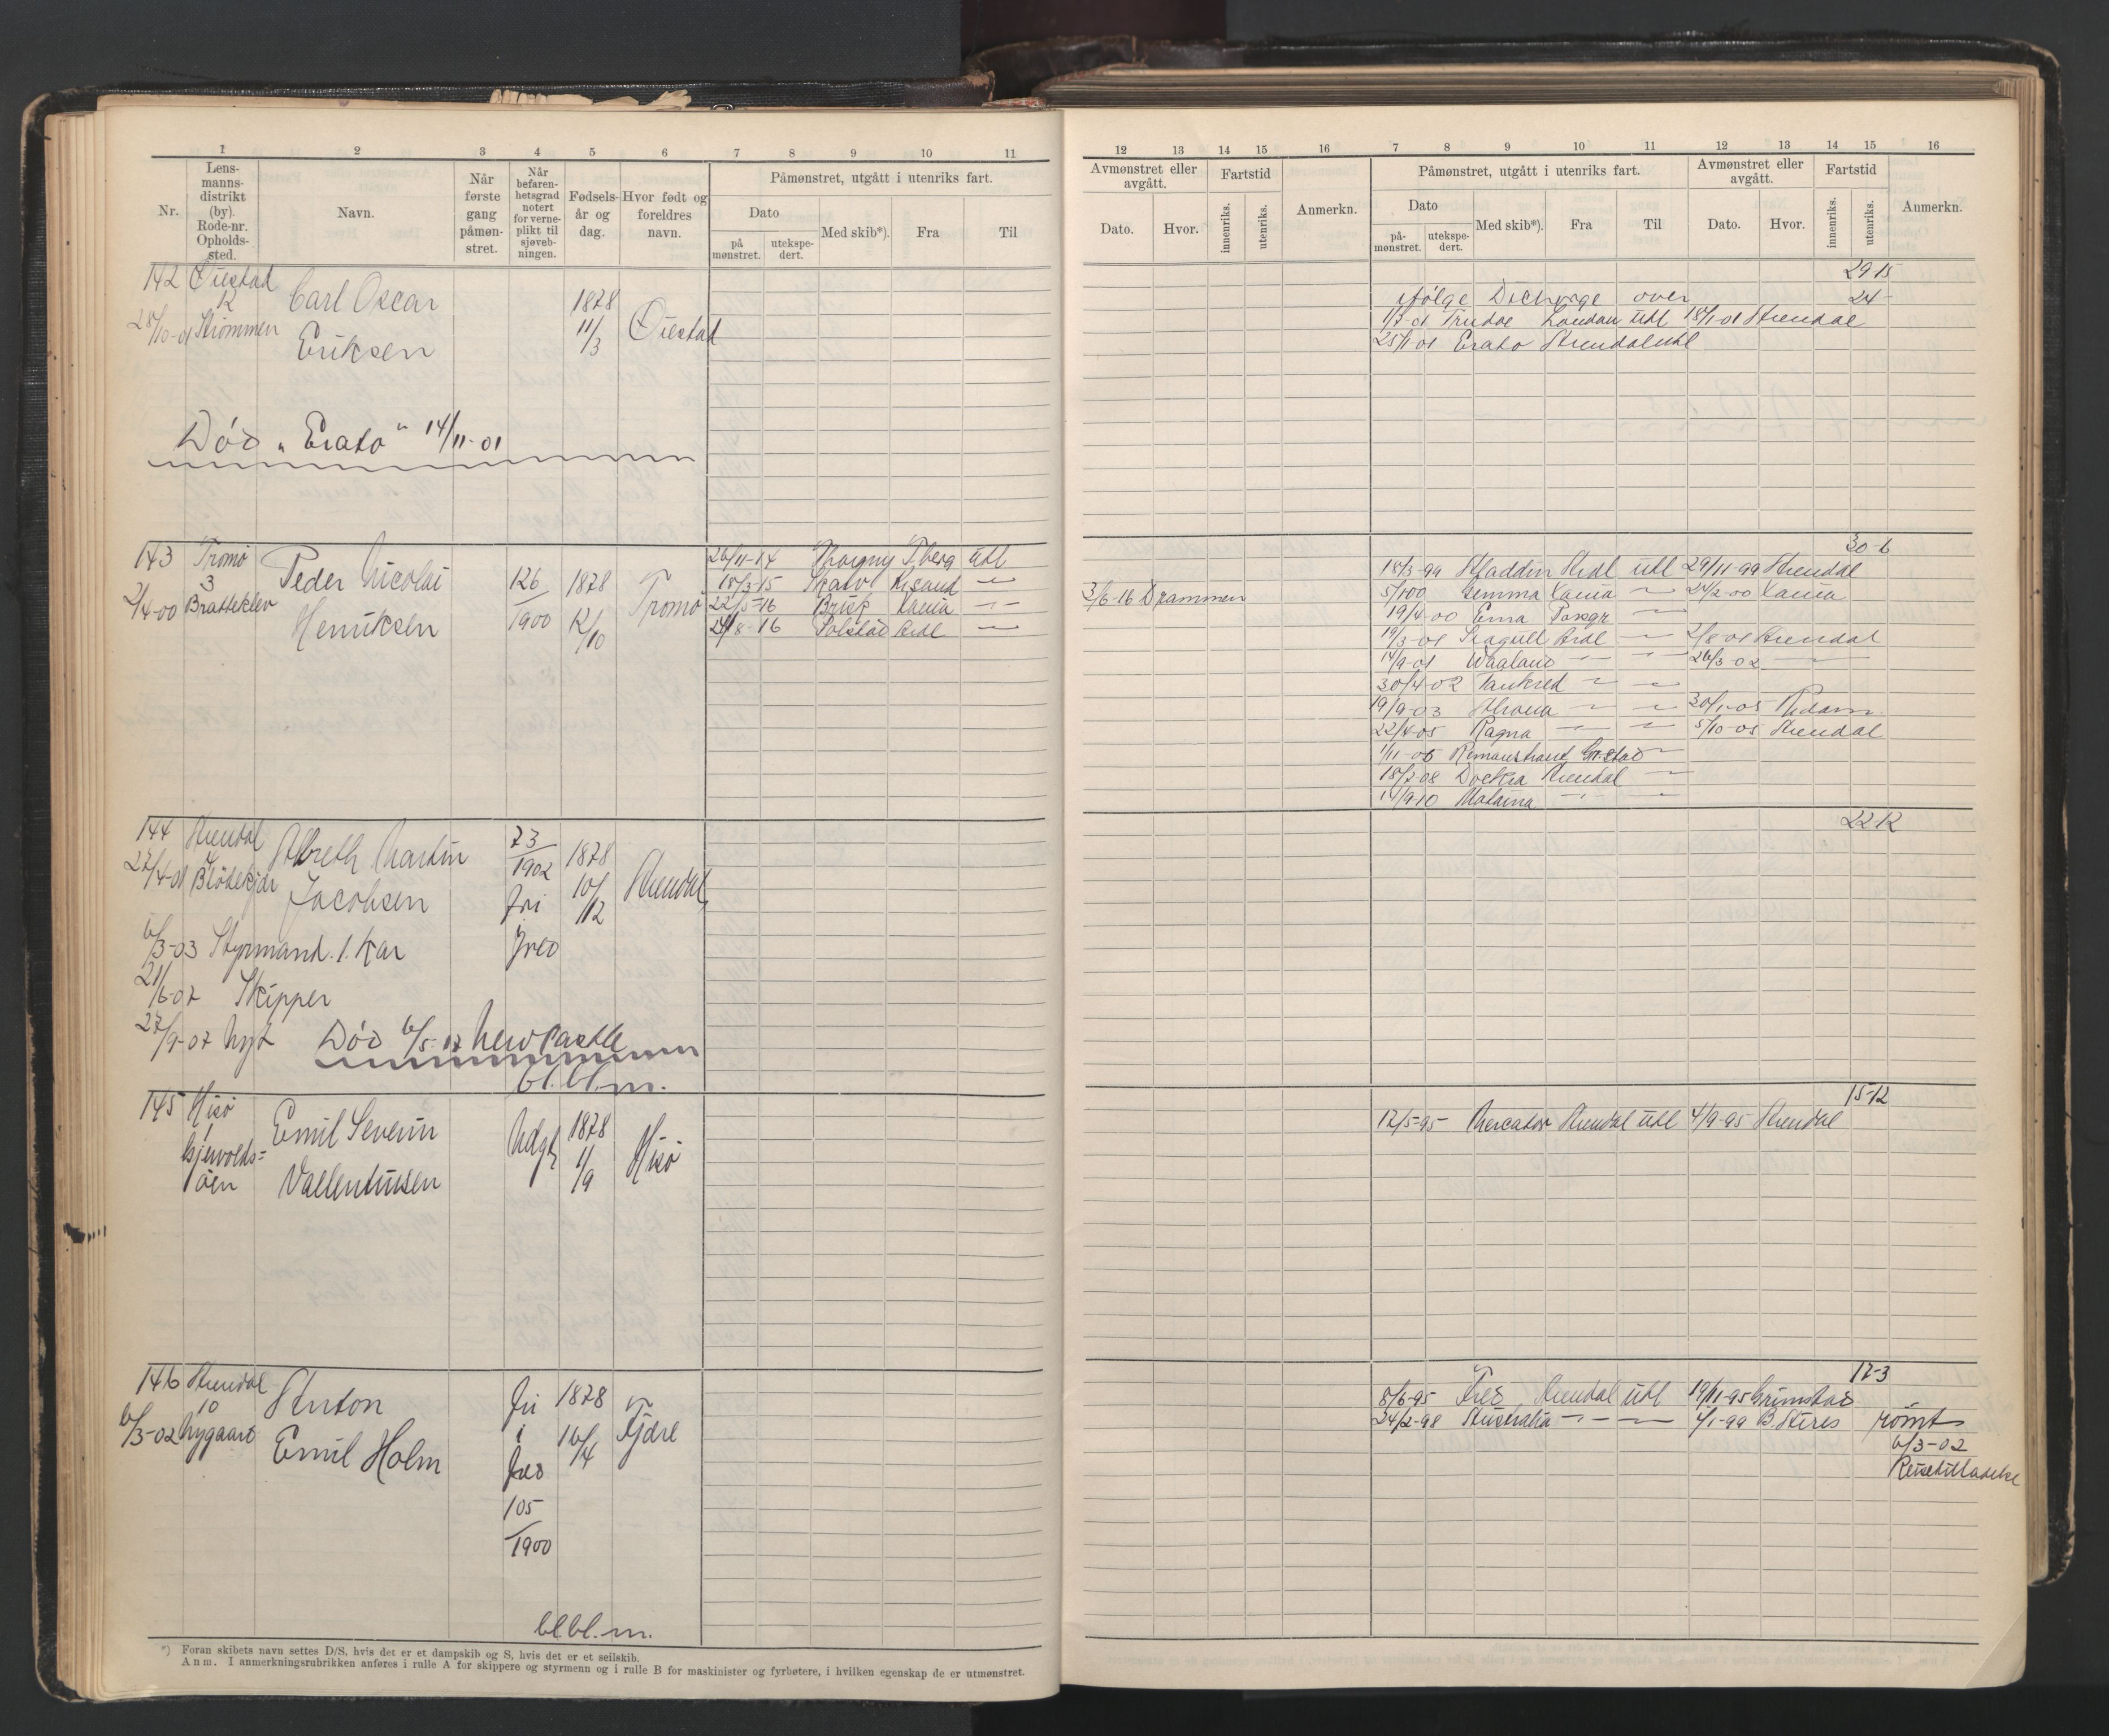 1 2 3 4 5 6 7 8 9 10 11
Nr.
Lens-
manns-
distrikt
(by).
Rode-nr.
Opholds-
sted.
Navn.
Når
første
gang
påmøn-
stret.
Når
befaren-
hetsgrad
notert
for verne-
plikt til
sjøveb-
ningen.
Fødsels-
år og
dag.
Hvor født og
foreldres
navn.
Påmønstret, utgått i utenriks fart.
Dato
på
mønstret.
utekspe-
dert.
Med skib*).
Fra
Til
142 Øiestad
12
28/10-01 Strømmen
Carl Oscar
Eriksen
1878
11/3
Øiestad
Død "Erato" 14/11-01
143 Tromø
3
2/4-00 Bratteklev
Peder Nicolai
Henriksen
126
1900
1878
12/10
Tromø
26/11-14 Thorgny Tberg Utl
18/3-15 Skato Krsand —
22/5-16 Brisk Xania —
24/8-16 Solstad Ardl —
144 Arendal
4
27/4-01 Blødekjær
Albreth Martin
Jacobsen
73
1902
fri
fred
1878
10/12
Arendal
6/3-03 Styrmand. 1. Kar
21/6-07 Skipper
27/9-07 Nyt
Død 6/5-17 New Castle
bl.bl.m.
145 Hisø
1
Gjervolds=
øen
Emil Severin
Vallentinsen
Udgt
1878
1/9
Hisø
146 Arendal
10
6/3-02 Nygaard
Anton
Emil Holm
fri
i
fred
105
1900
1878
16/4
Fjære
bl.bl.m.
*) Foran skibets navn settes D/S, hvis det er et dampskib og S, hvis det er et seilskib.
Anm. I anmerkningsrubrikken anføres i rulle A for skippere og styrmenn og i rulle B for maskinister og fyrbøtere, i hvilken egenskap de er utmønstret.
12 13 14 15 16 7 8 9 10 11 12 13 14 15 16
Avmønstret eller
avgått.
Dato.
Hvor.
Fartstid
innenriks.
utenriks.
Anmerkn.
Påmønstret, utgått i utenriks fart.
Dato
på-
mønstret.
utekspe-
dert.
Med skib*).
Fra
Til
Avmønstret eller
avgått.
Dato.
Hvor.
Fartstid
innenriks.
utenriks.
Anmerkn.
29 15
ifølge Decharge over 24-
1/7-01 Trudae London Utl 18/1-01 Arendal
25/1 01 Erato Arendal Utl
30-6
3/6-16 Drammen
18/3-99 Aladdin Ardl Utl 29/11-99 Arendal
5/1 00 Gemma Xania — 24/2-00 Xania
19/4-00 Erna Porsgr —
19/3-01 Seagull Ardl — 2/8-01 Arendal
14/9-01 Waaland — — 26/3-02 —
30/4-02 Tankred — —
19/9-03 Athena — — 30/1-05 Rdam
22/4-05 Ragna — — 5/10-05 Arendal
1/11-06 Romanshavet Gr.stad —
18/2-08 Doctria Arendal —
14/9-10 Matanna — —
22 12
15-12
12/5-95 Mercator Arendal Utl 4/9-95 Arendal
17-3
8/6-95 Fred Arendal Utl 19/11-95 Grimstad
24/2-98 Australia — — 4/1-99 B Aires rømt
6/3-02
Reisetilladelse